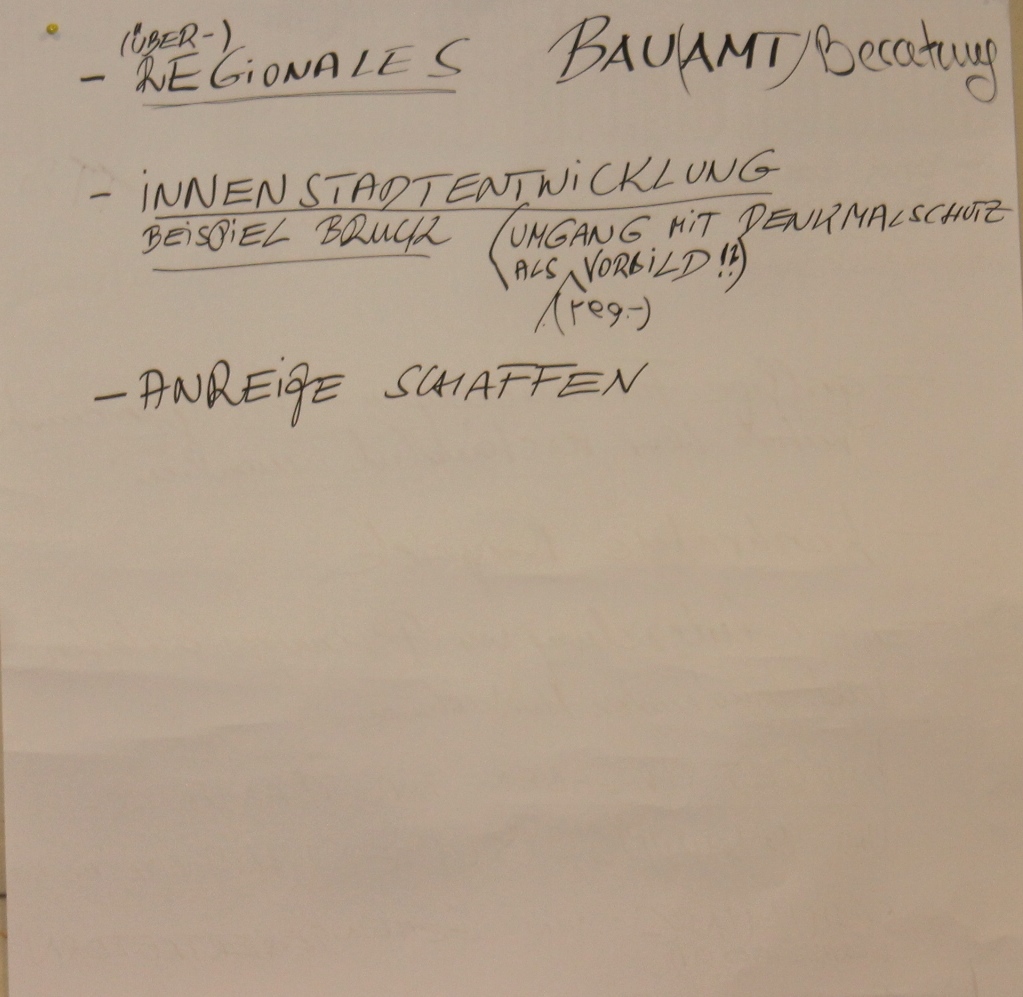 (ÜBER-)
- REGIONALES BAU(AMT)Beratung
- INNENSTADTENTWICKLUNG
BEISPIEL BRUCK (UMGANG MIT DENKMALSCHUTZ
ALS VORBILD!?)
(reg-)
- ANREIZE SCHAFFEN